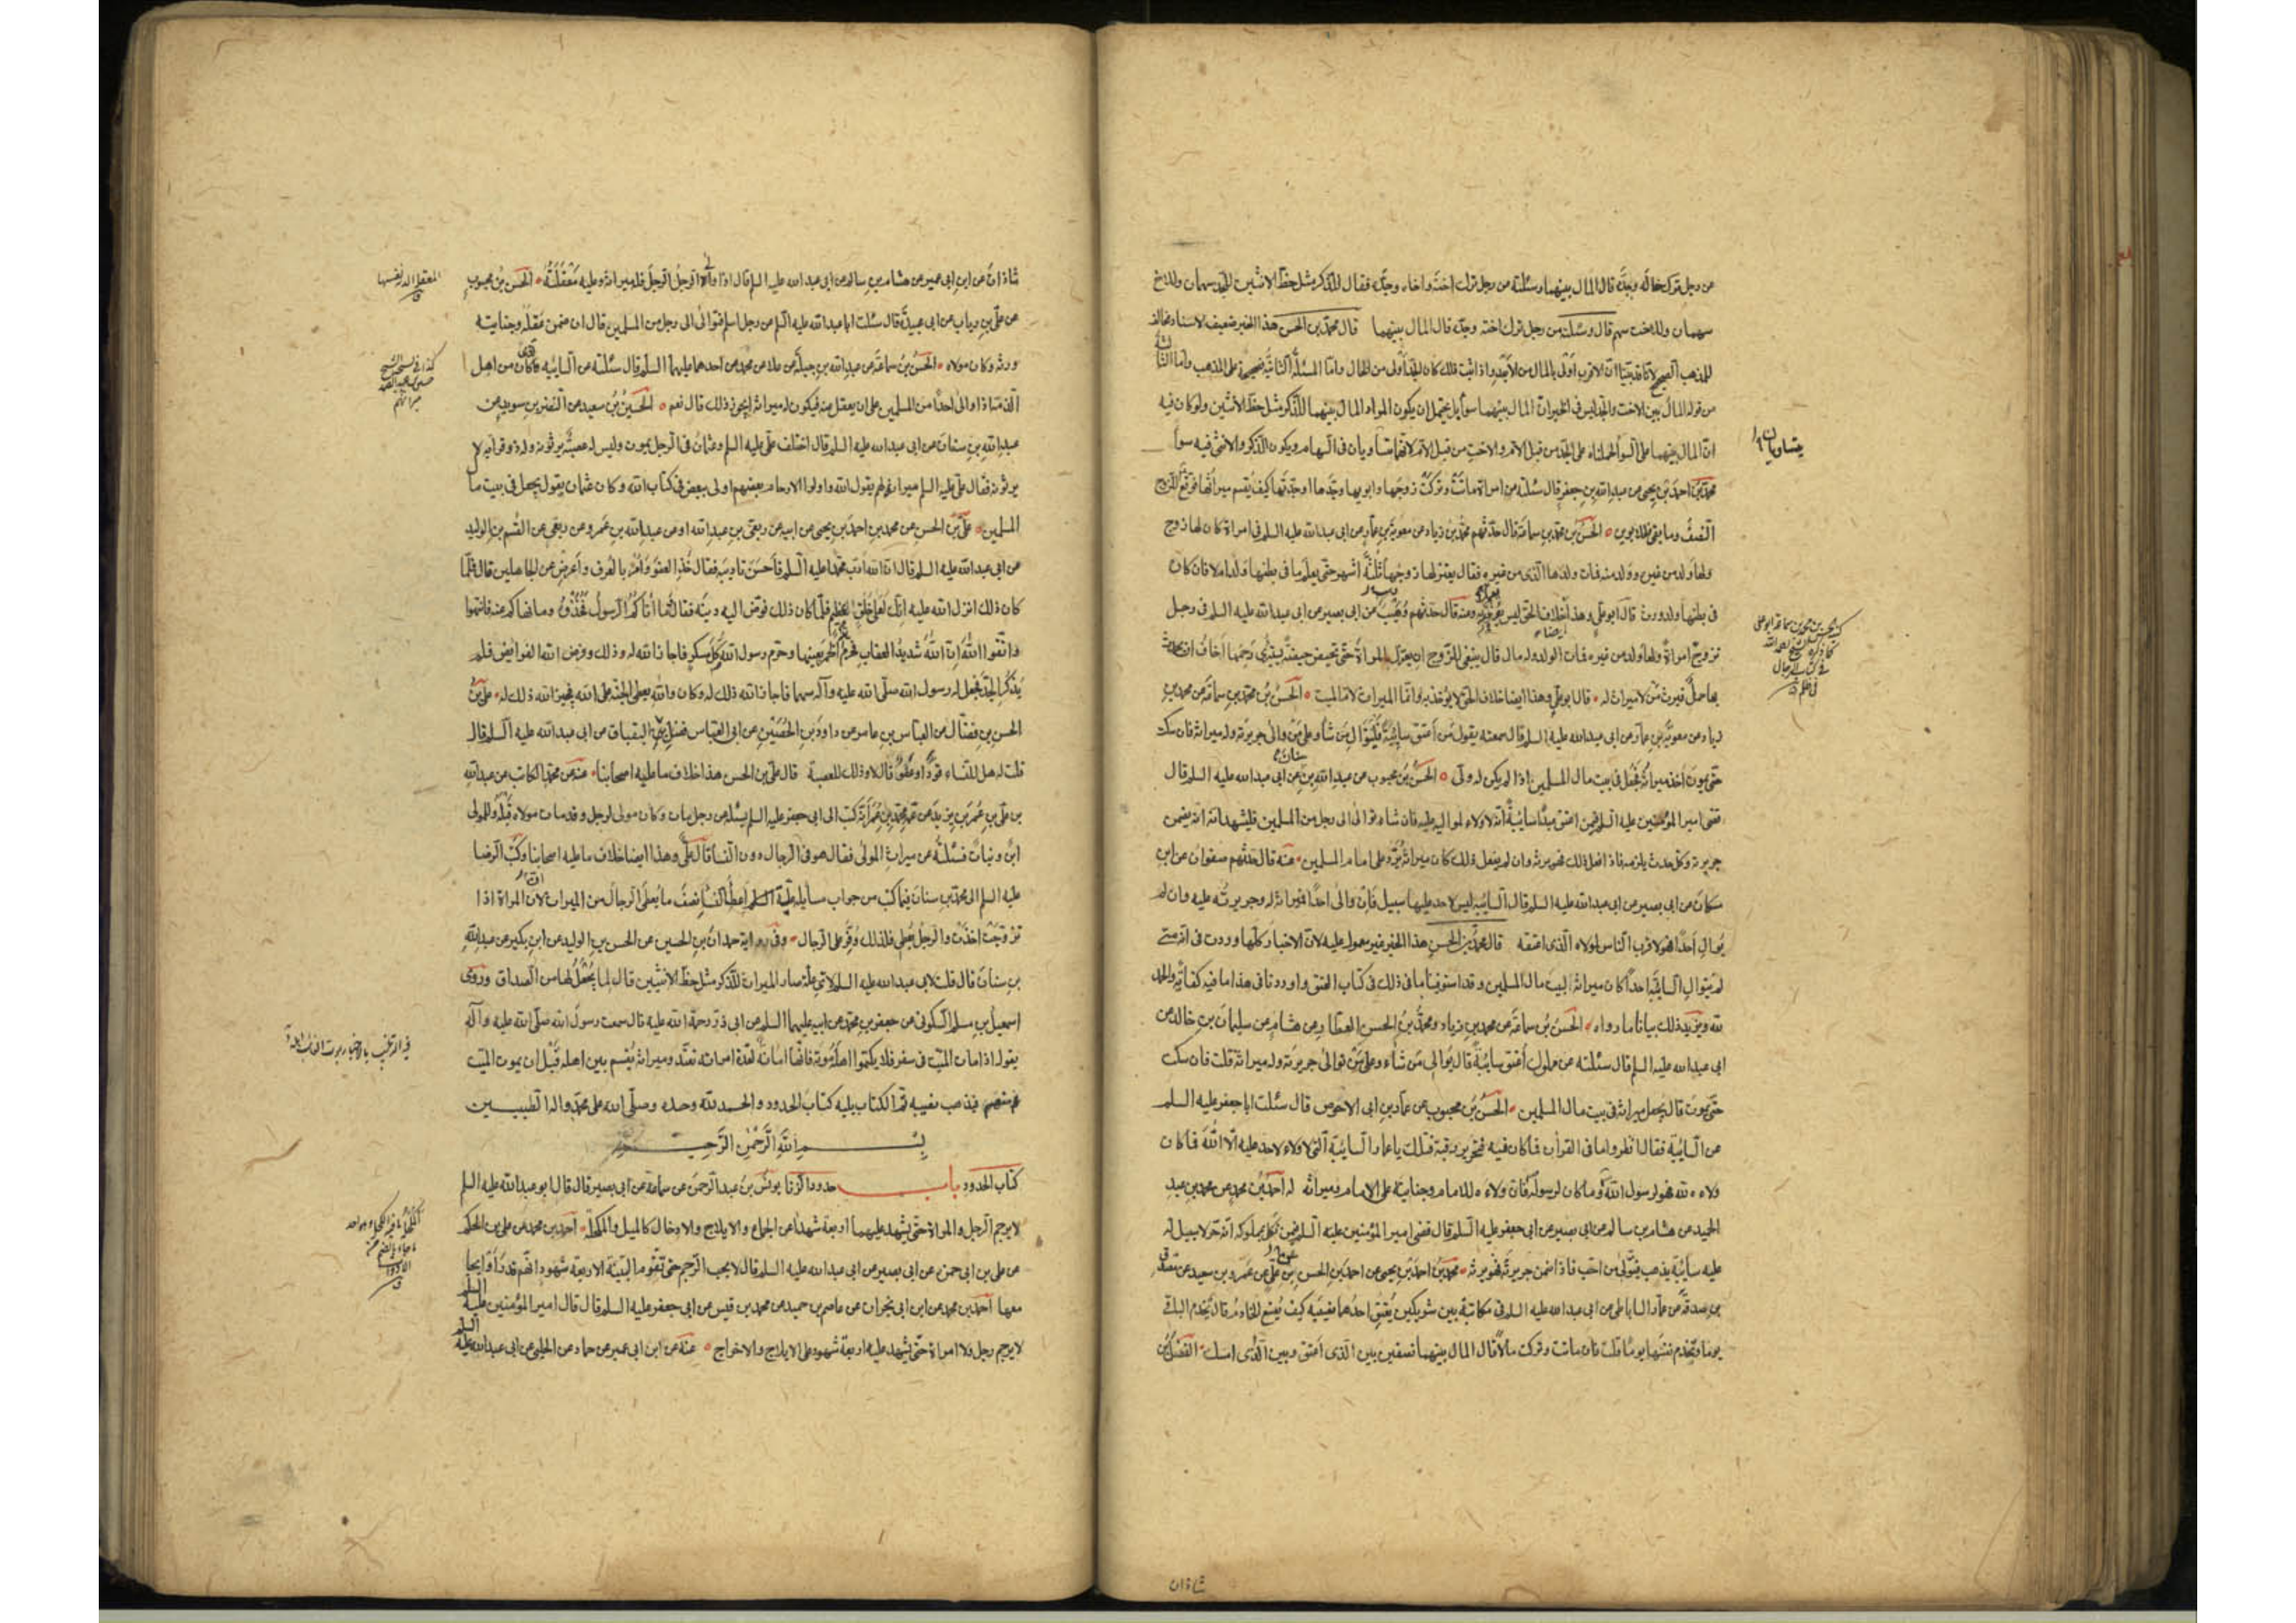 من رجل ترك خاله وجده قال المال بينهما وسئلته من رجل ترك اخته واخاه وجده فقال للذكر مثل حظ الانثيين للجد سهمان وللاخ
سهمان وللاخت سهم قال وسئلته من رجل ترك اخته وجده قال المال بينهما قال محمد بن الحسن هذا الخبر ضعيف الاسناد مخالف
للمذهب الصحيح لانا قد بينا ان الاقرب اولى بالمال من الابعد واذا ثبت ذلك كان الجد اولى من الخال واما المسئلة الثانية فصحيحة على المذهب واما الثالثة
من قوله المال بين الاخت والجد ليس في الخبر ان المال بينهما سواء بل يحتمل ان يكون المراد المال بينهما للذكر مثل حظ الانثيين ولو كان فيه
ان المال بينهما على السواء لحملناه على الجد من قبل الام والاخت من قبل الام لانهما يتساويان في السهام ويكون الذكر والانثى فيه سواء
يتساويان
محمد بن احمد بن يحيى عن عبد الله بن جعفر قال سئلته عن امراة ماتت وتركت زوجها وابويها وجدها او جدتها كيف يقسم ميراثها فوقع للزوج
النصف وما بقى فللابوين الحسن بن محمد بن سماعة قال حدثهم محمد بن زياد عن معوية بن عمار عن ابي عبد الله عليه السلم في امراة كان لها زوج
ولها ولد من غيره وولد منه فمات ولدها الذى من غيره فقال يعتزلها زوجها ثلثة اشهر حتى يعلم ما في بطنها ولد ام لا فان كان
في بطنها ولد ورث قال ابو علي وهذا خلاف الحق ليس ومنه قال حدثهم وهيب عن ابي بصير عن ابي عبد الله عليه السلم في رجل
تزوج امراة ولها ولد من غيره فمات الولد وله مال قال ينبغي للزوج ان يعتزل المراة حتى تحيض حيضة يستبرئ رحمها اخاف ان يحدث
بها حمل فيرث من لا ميراث له قال ابو علي وهذا ايضا خلاف الحق لا يؤخذ به وانما الميراث لام الميت الحسن بن محمد بن سماعة عن محمد بن
زياد عن معوية بن عمار عن ابي عبد الله عليه السلم قال سمعته يقول من اعتق سايبة فليتوال من شاء وعلى من والى جريرته وله ميراثه فان سكت
حتى يموت اخذ ميراثه فجعل في بيت مال المسلمين اذا لم يكن له ولى الحسن بن محبوب عن عبد الله بن سنان عن ابي عبد الله عليه السلم قال
قضى امير المؤمنين عليه السلم فيمن اعتق عبدا سايبة انه لا ولاء لمواليه عليه فان شاء توالى الى رجل من المسلمين فليشهد انه يضمن
جريرته وكل حدث يلزمه فاذا فعل ذلك فهو يرثه وان لم يفعل ذلك كان ميراثه يرد على امام المسلمين عنه قال حدثهم صفوان عن ابن
مسكان عن ابي بصير عن ابي عبد الله عليه السلم قال السايبة ليس لاحد عليها سبيل فان والى احدا فميراثه له وجريرته عليه وان لم
يوال احدا فهو لاقرب الناس لمولاه الذى اعتقه قال محمد بن الحسن هذا الخبر غير معمول عليه لان الاخبار كلها وردت في انه متى
لم يتوال السايبة احدا كان ميراثه لبيت مال المسلمين وقد استوفينا ما في ذلك في كتاب العتق واوردنا في هذا ما فيه كفاية والحمد
لله ويزيد ذلك بيانا ما رواه الحسن بن سماعة عن محمد بن زياد ومحمد بن الحسن العطار عن هشام عن سليمان بن خالد عن
ابي عبد الله عليه السلم قال سئلته عن مملوك اعتق سايبة قال يوالى من شاء وعلى من توالى جريرته وله ميراثه قلت فان سكت
حتى يموت قال يجعل ميراثه في بيت مال المسلمين الحسن بن محبوب عن عمار بن ابي الاحوص قال سئلت ابا جعفر عليه السلم
عن السايبة فقال انظروا ما في القرآن فما كان فيه فتحرير رقبة فتلك يا عمار السايبة التي لا ولاء لاحد عليه الا الله فما كان
ولاءه لله فهو لرسول الله وما كان لرسوله فان ولاءه للامام وجنايته على الامام وميراثه له احمد بن محمد عن محمد بن عبد
الحميد عن هشام بن سالم عن ابي بصير عن ابي جعفر عليه السلم قال قضى امير المؤمنين عليه السلم فيمن نكل بمملوكه انه حر لا سبيل له
عليه سايبة يذهب فيتولى من احب فاذا ضمن جريرته فهو يرثه محمد بن احمد بن يحيى عن احمد بن الحسن بن علي عن عمرو بن سعيد عن مصدق
بن صدقة عن عمار الساباطي عن ابي عبد الله عليه السلم في مكاتبة بين شريكين يعتق احدهما نصيبه كيف يصنع الخادم قال يخدم الباقي
يوما وتخدم نفسها يوما قلت فان ماتت وتركت مالا قال المال بينهما نصفين بين الذى اعتق وبين الذى امسك الفضل بن
شاذان
شاذان عن ابن ابي عمير عن هشام بن سالم عن ابي عبد الله عليه السلم قال اذا والى الرجل الرجل فله ميراثه وعليه معقلته الحسن بن محبوب
عن علي بن رياب عن ابي عبيدة قال سئلت ابا عبد الله عليه السلم عن رجل اسلم فتوالى الى رجل من المسلمين قال ان ضمن عقله وجنايته
ورثه وكان مولاه الحسن بن سماعة عن عبد الله بن جبلة عن علا عن محمد عن احدهما عليهما السلم قال سئلته عن السايبة فكان من اهل
الذمة اذا والى احدا من المسلمين على ان يعقل عنه فيكون له ميراثه ايجوز ذلك قال نعم الحسين بن سعيد عن النضر بن سويد عن
عبد الله بن سنان عن ابي عبد الله عليه السلم قال اختلف علي عليه السلم وعثمان في الرجل يموت وليس له عصبة يرثونه وله ذو قرابة لا
يرثونه فقال علي عليه السلم ميراثه لهم يقول الله واولوا الارحام بعضهم اولى ببعض في كتاب الله وكان عثمان يقول يجعل في بيت مال
المسلمين علي بن الحسن عن محمد بن احمد بن يحيى عن ابيه عن ربعي بن عبد الله او عن عبد الله بن عمرو عن ربعي عن القسم بن الوليد
عن ابي عبد الله عليه السلم قال ان الله ادب محمدا عليه السلم فاحسن تاديبه فقال خذ العفو وأمر بالعرف وأعرض عن الجاهلين قال فلما
كان ذلك انزل الله عليه انك لعلى خلق عظيم فلما كان ذلك فوض اليه دينه فقال ما آتاكم الرسول فخذوه وما نهاكم عنه فانتهوا
واتقوا الله ان الله شديد العقاب فحرم الخمر بعينها وحرم رسول الله كل مسكر فاجاز الله له ذلك وفرض الله الفرائض فلم
يذكر الجد فجعل له رسول الله صلى الله عليه وآله سهما فاجاز الله ذلك له وكان والله يعطى الجنة على الله فيجيز الله ذلك له علي بن
الحسن بن فضال عن العباس بن عامر عن داود بن الحصين عن ابي العباس فضل البقباق عن ابي عبد الله عليه السلم قال
قلت له هل للنساء قود او عفو قال لا وذلك للعصبة قال علي بن الحسن هذا خلاف ما عليه اصحابنا عنه عن محمد الكاتب عن عبد الله
بن علي بن عمر بن يزيد عن عمه محمد بن عمر انه كتب الى ابي جعفر عليه السلم يسئله عن رجل مات وكان مولى لرجل وقد مات مولاه قبله وللمولى
ابن وبنات فسئلته عن ميراث المولى فقال هو في الرجال دون النساء قال علي وهذا ايضا خلاف ما عليه اصحابنا وكتب الرضا
عليه السلم الى محمد بن سنان فيما كتب من جواب مسايله علة اعطاء النساء نصف ما يعطى الرجال من الميراث لان المراة اذا
تزوجت اخذت والرجل يعطى فلذلك وفر على الرجال وفي رواية حمدان بن الحسين عن الحسن بن الوليد عن ابن بكير عن عبد الله
بن سنان قال قلت لابي عبد الله عليه السلم لاي علة صار الميراث للذكر مثل حظ الانثيين قال لما يجعل لها من الصداق وروى
اسمعيل بن مسلم السكوني عن جعفر بن محمد عن ابيه عليهما السلم عن ابي ذر رحمة الله عليه قال سمعت رسول الله صلى الله عليه وآله
يقول اذا مات الميت في سفر فلا يكتموا اهله موته فانها امانة لعدة امراته تعتد وميراثه يقسم بين اهله قبل ان يموت الميت
منهم فيذهب نصيبه تم الكتاب يليه كتاب الحدود والحمد لله وحده وصلى الله على محمد واله الطيبين
بسم الله الرحمن الرحيم
كتاب الحدود باب حدود الزنا يونس بن عبد الرحمن عن سماعة عن ابي بصير قال قال ابو عبد الله عليه السلم
لا يرجم الرجل والمراة حتى يشهد عليهما اربعة شهداء على الجماع والايلاج والادخال كالميل والمكحلة احمد بن محمد عن علي بن الحكم
عن علي بن ابي حمزة عن ابي بصير عن ابي عبد الله عليه السلم قال لا يجب الرجم حتى تقوم البينة الاربعة شهود انهم قد راوه يجامعها
احمد بن محمد عن ابن ابي نجران عن عاصم بن حميد عن محمد بن قيس عن ابي جعفر عليه السلم قال قال امير المؤمنين عليه السلم
لا يرجم رجل ولا امراة حتى يشهد عليه اربعة شهود على الايلاج والاخراج عنه عن ابن ابي عمير عن حماد عن الحلبي عن ابي عبد الله عليه السلم